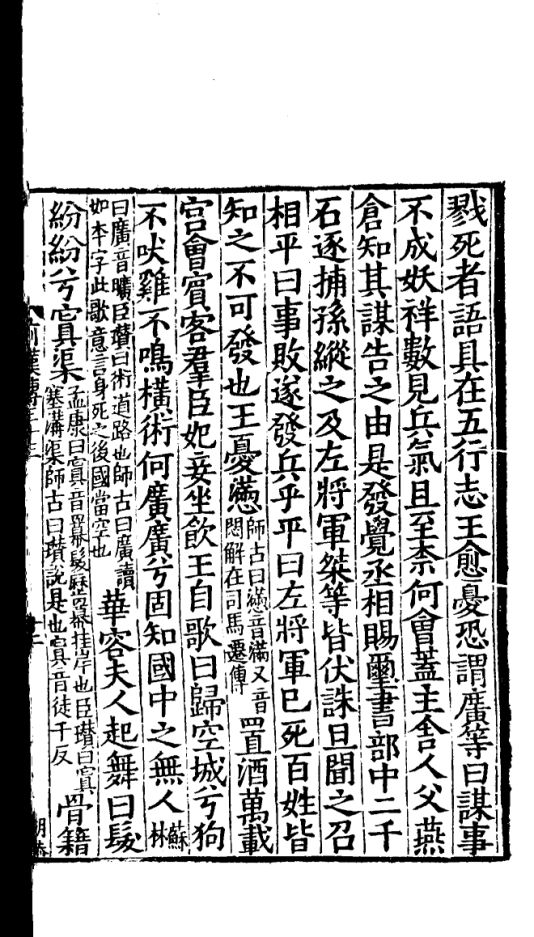 戮死者語具在五行志王愈憂恐謂廣等曰謀事
不成妖祥數見兵氣且至柰何會蓋主舍人父燕
倉知其謀告之由是發覺丞相賜璽書部中二千
石逐捕孫縱之及左將軍桀等皆伏誅旦聞之召
相平曰事敗遂發兵乎平曰左將軍已死百姓皆
知之不可發也王憂懣師古曰懣音滿又音悶解在司馬遷傳置酒萬載
宫會賓客羣臣妃妾坐飲王自歌曰歸空城兮狗
不吠雞不鳴橫術何廣廣兮固知國中之無人蘇林
曰廣音曠臣瓚曰術道路也師古曰廣讀如本字此歌意言身死之後國當空也華容夫人起舞曰髮
紛紛兮寘渠孟康曰寘音羃髮歷羃挂岸也臣瓚曰寘塞溝渠師古曰瓚說是也寘音徒千反骨籍
前漢傳三十三
十二